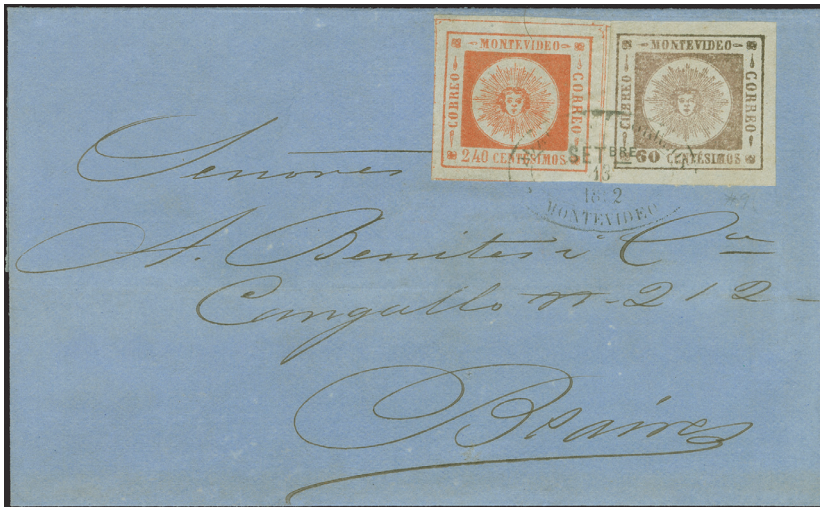 MONTEVIDEO
CORREO
CORREO
240 CENTÉSIMOS
MONTEVIDEO
CORREO
CORREO
60 CENTÉSIMOS
SETBRE
13
MONTEVIDEO
Señores
A. Benites y Cia
Cangallo n. 212
Bs aires